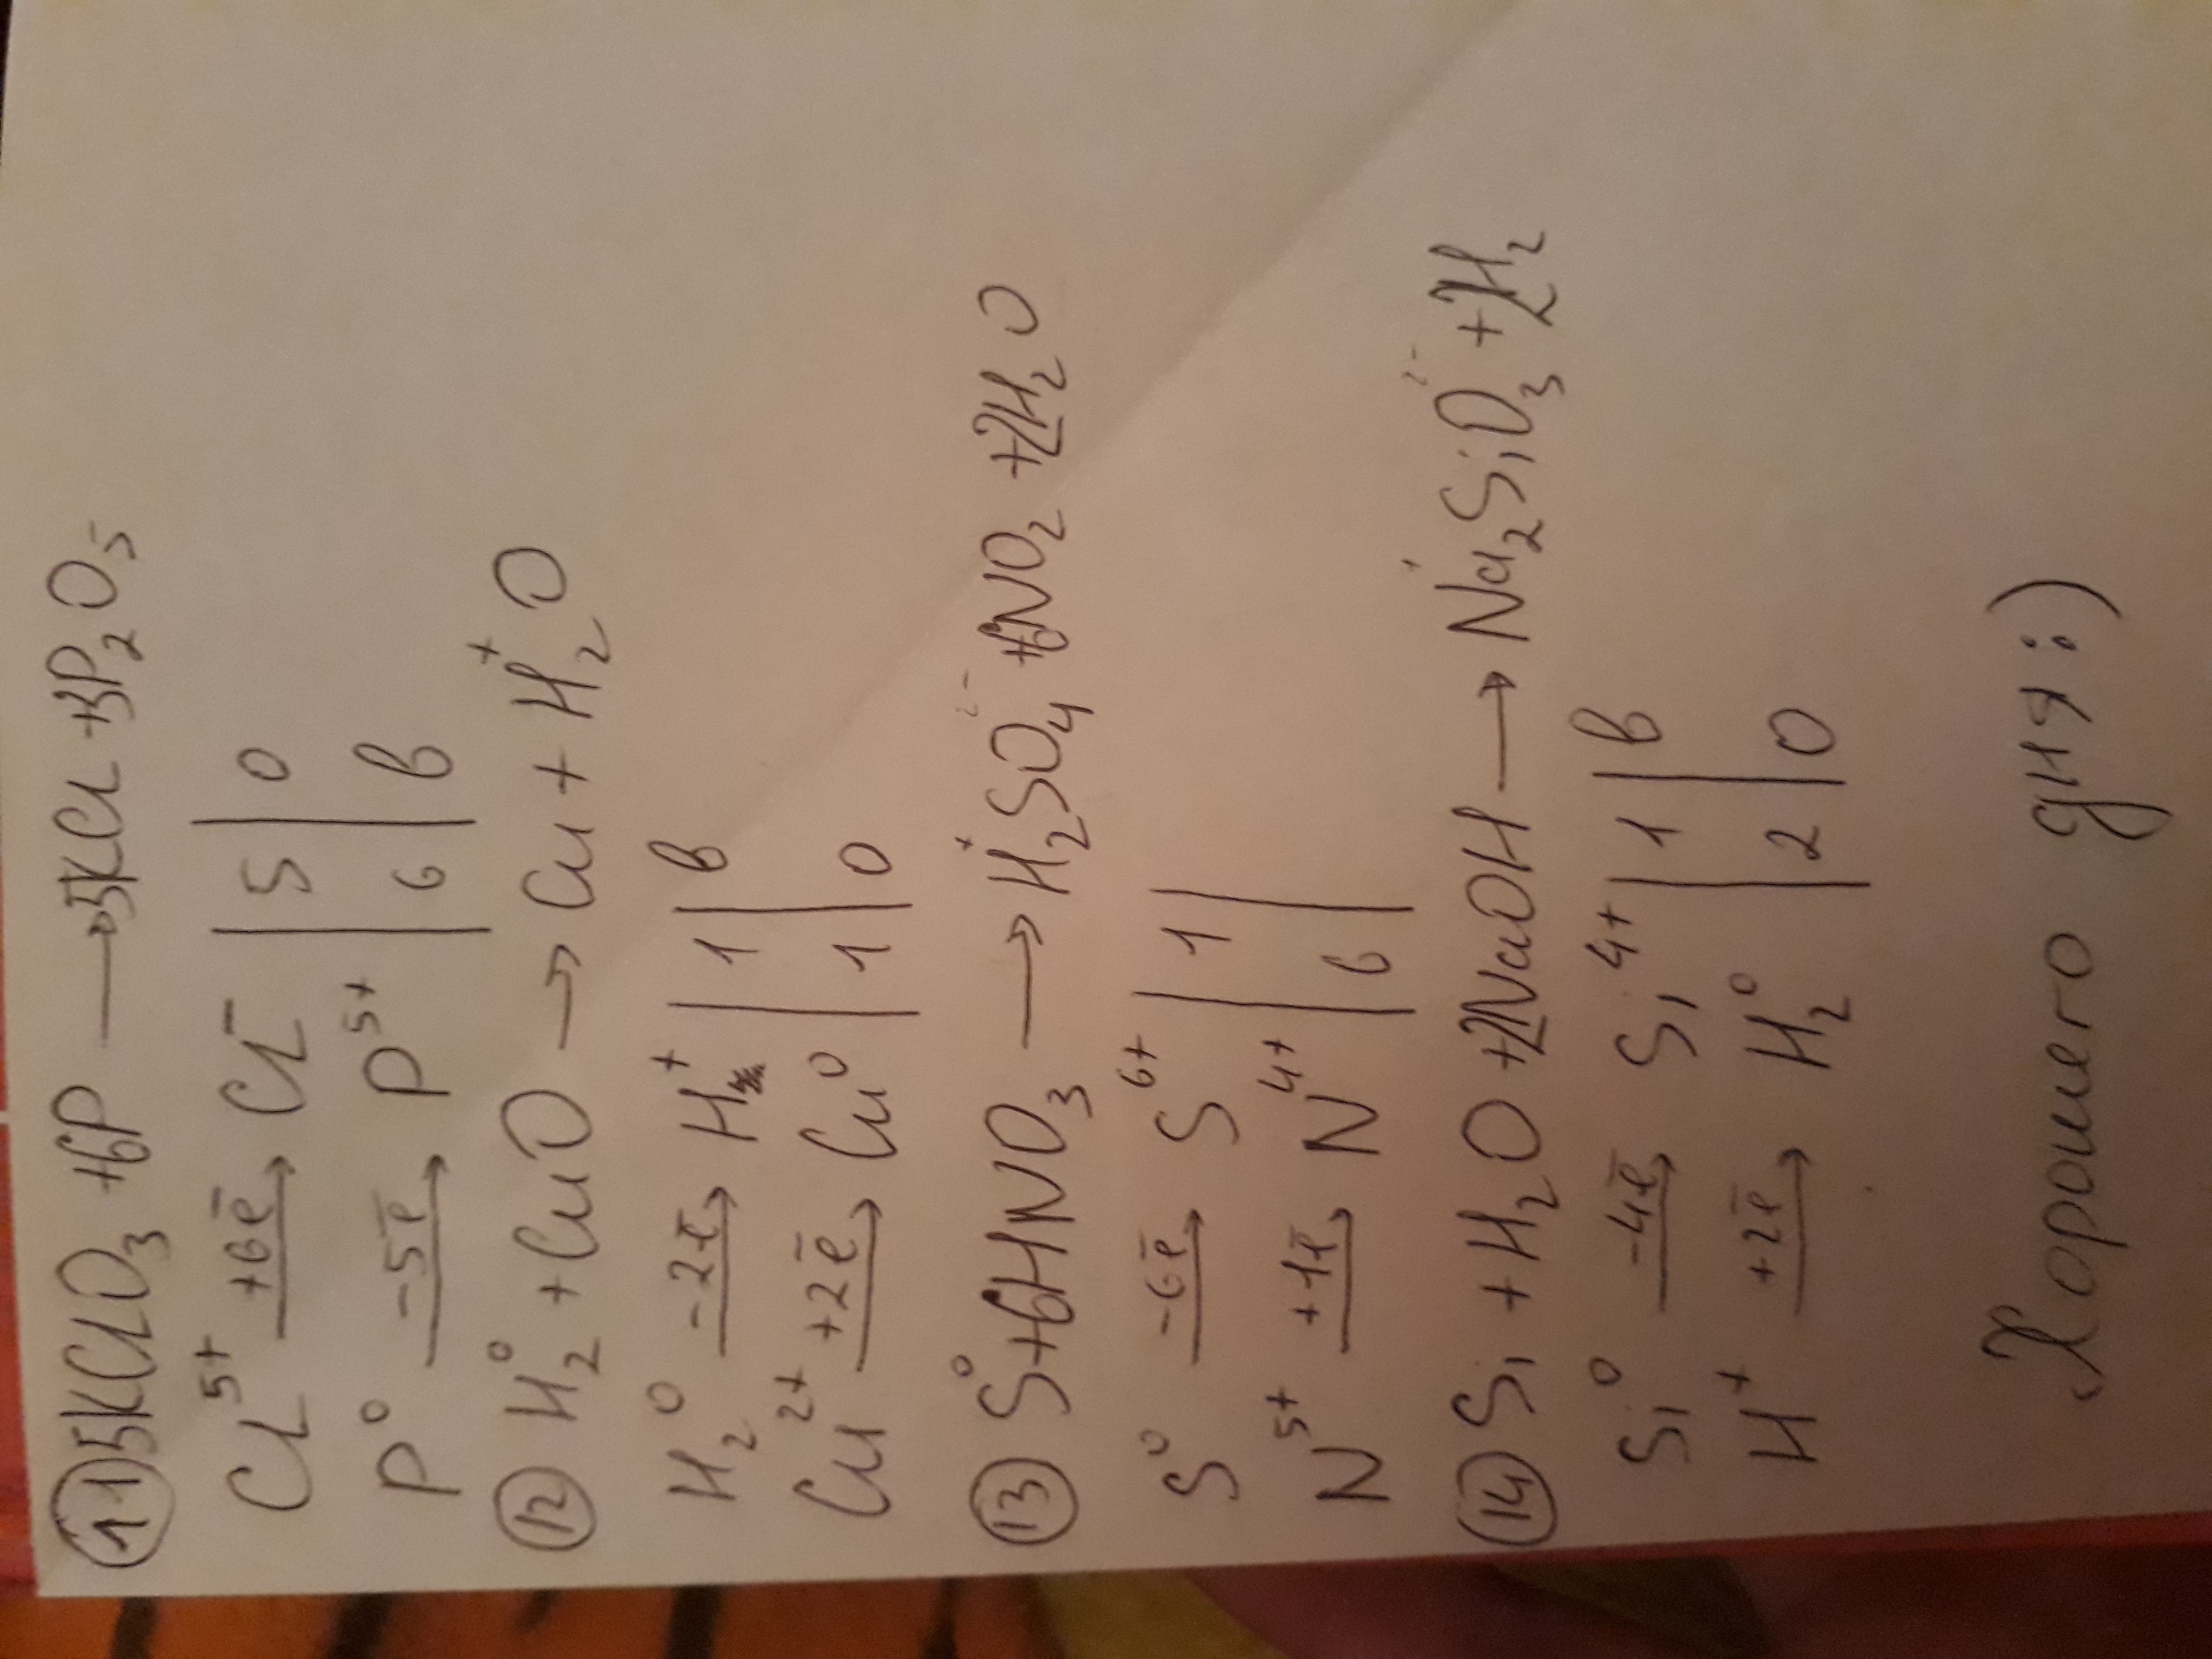 ⑪ 5KClO₃ + 6P → 5KCl + 3P₂O₅
Cl⁵⁺ +6e̅→ Cl⁻ | 5 | О
P⁰ −5e̅→ P⁵⁺ | 6 | В
⑫ H₂⁰ + CuO → Cu + H₂⁺O
H₂⁰ −2e̅→ H⁺ | 1 | В
Cu²⁺ +2e̅→ Cu⁰ | 1 | О
⑬ S⁰ + 6HNO₃ → H₂⁺SO₄²⁻ + 6NO₂ + 2H₂O
S⁰ −6e̅→ S⁶⁺ | 1 |
N⁵⁺ +1e̅→ N⁴⁺ | 6 |
⑭ Si + H₂O + 2NaOH → Na₂⁺SiO₃²⁻ + 2H₂
Si⁰ −4e̅→ Si⁴⁺ | 1 | В
H⁺ +2e̅→ H₂⁰ | 2 | О
Хорошего дня :)